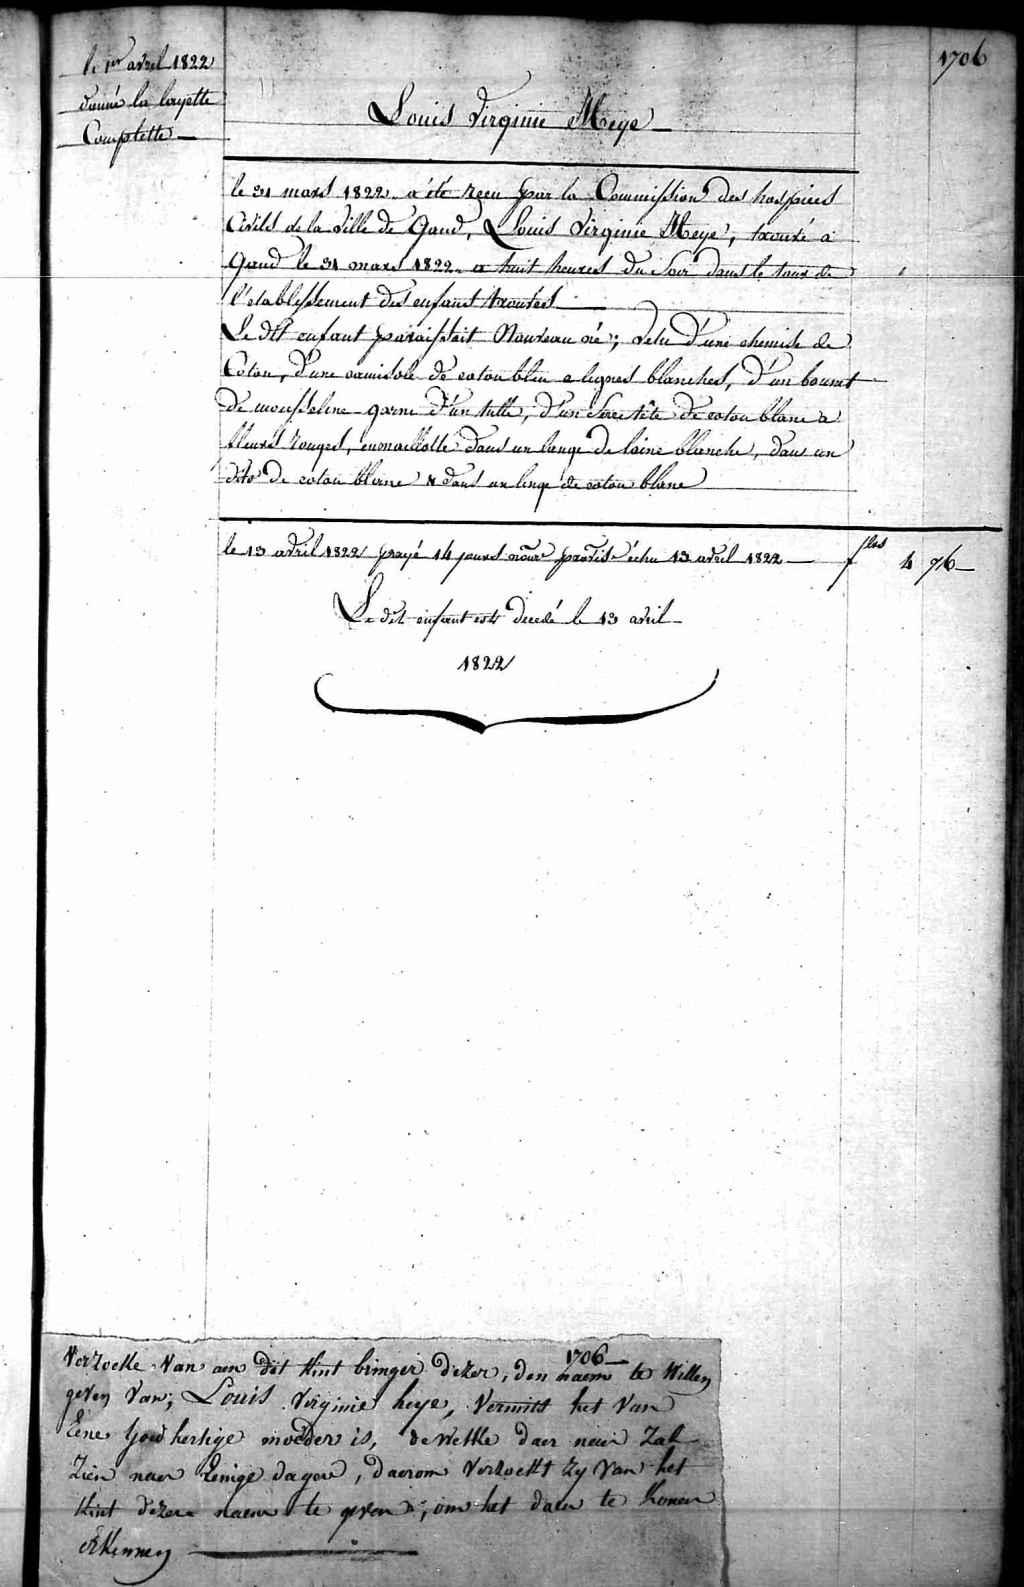 1706
le 1er avril 1822
donné la layette
Complette —
Louis Virginie Meye —
le 31 mars 1822 a été recu par la Commission des hospices
Civils de la ville de Gand, Louis Virginie Meye, trouvé a
Gand le 31 mars 1822 a huit heures du soir dans le tour de
l'etablissement des enfans trouvés
Le dit enfant paraissait Nouveau né; vetu d'une chemise de
Coton, d'une camisole de coton bleu a lignes blanches, d'un bonnet
de mousseline garni d'un tulle, d'un serre tête de coton blanc a
fleurs rouges, enmaillotté dans un lange de laine blanche, dans un
dito de coton blanc & dans un linge de coton blanc
le 13 avril 1822 payé 14 jours nourre provisre échu 13 avril 1822 — fls 4 76 —
Le dit enfant est decedé le 13 avril
1822
1706 —
Verzoeke van aen dit kint bringer dezer, den naem te willen
geven van; Louis Virginie heye, vermits het van
Eene goed hertige moeder is, dewelke daer naer zal
zien naer Eenige dagen, daerom verzoekt zy van het
kint dezen naem te geven; om het daer te konen
erkennen —